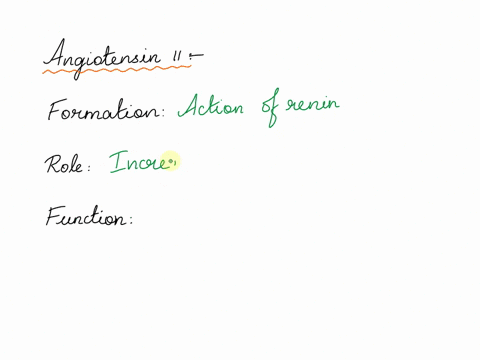 Angiotensin II :-
Formation: Action of renin
Role: Incre
Function: